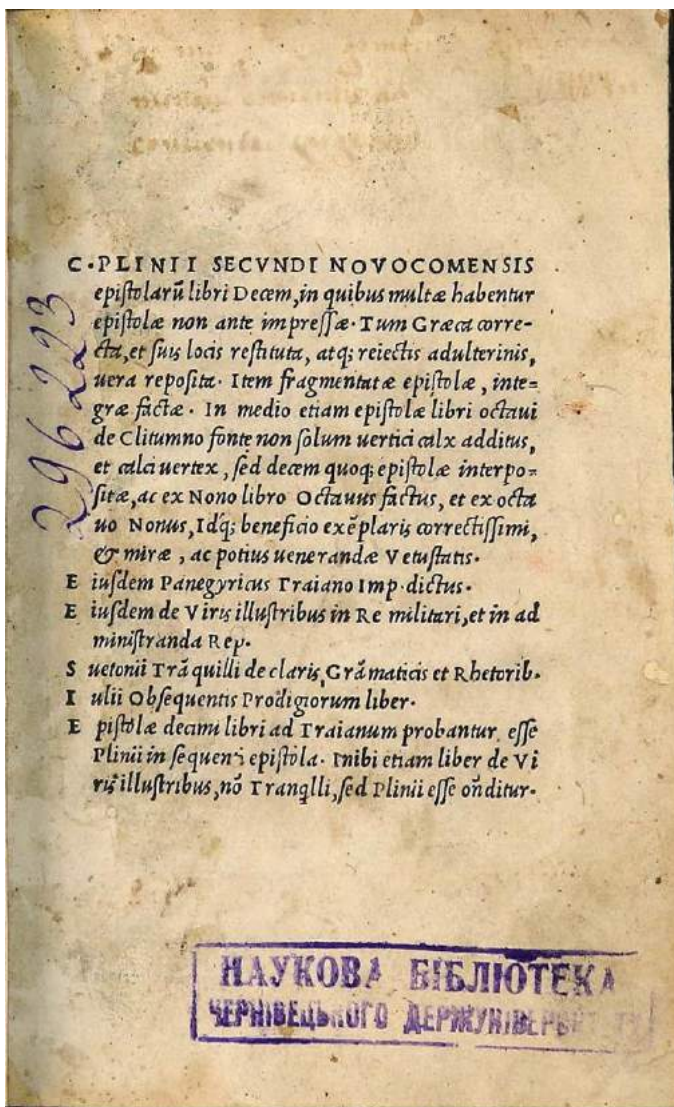 C·PLINII SECVNDI NOVOCOMENSIS
epistolarũ libri Decem, in quibus multæ habentur
epistolæ non ante impressæ. Tum Græca corre-
cta, et suis locis restituta, atq; reiectis adulterinis,
uera reposita. Item fragmentatæ epistolæ, inte=
græ factæ. In medio etiam epistolæ libri octaui
de Clitumno fonte non solum uertici calx additus,
et calci uertex, sed decem quoq; epistolæ interpo=
sitæ, ac ex Nono libro Octauus factus, et ex octa
uo Nonus, Idq; beneficio exẽplaris correctissimi,
& miræ, ac potius uenerandæ Vetustatis.
E iusdem Panegyricus Traiano Imp. dictus.
E iusdem de Viris illustribus in Re militari, et in ad
ministranda Rep.
S uetonii Trãquilli de claris Grãmaticis et Rhetorib.
I ulii Obsequentis Prodigiorum liber.
E pistolæ decimi libri ad Traianum probantur esse
Plinii in sequenti epistola. Inibi etiam liber de Vi
ris illustribus, nõ Tranqlli, sed Plinii esse oñditur.
296223
НАУКОВА БІБЛІОТЕКА
ЧЕРНІВЕЦЬКОГО